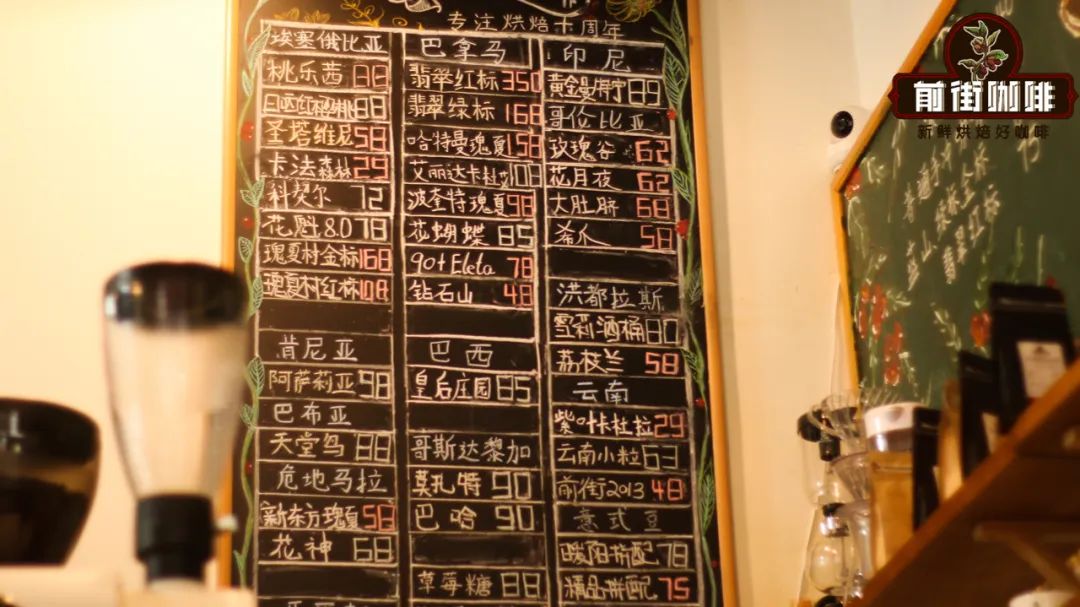 专注烘焙十周年
埃塞俄比亚
桃乐茜 88
日西红 88
圣塔维尼 58
卡法森林 29
科契尔 72
花魁8.0 78
瑰夏村金标 168
瑰夏村红标 108
肯尼亚
阿萨莉亚 98
巴布亚
天堂鸟 88
危地马拉
新东方瑰夏 58
花神 68
巴拿马
翡翠红标 350
翡翠绿标 168
哈特曼瑰夏 158
艾丽达卡杜艾 108
波奎特瑰夏 98
花蝴蝶 85
90+ Eleta 78
钻石山 48
巴西
皇后庄园 85
哥斯达黎加
莫扎特 90
巴哈 90
草莓糖 88
印尼
黄金曼特宁 89
哥伦比亚
玫瑰谷 62
花月夜 62
大肚脐 68
希爪 58
洪都拉斯
雪莉酒桶 80
荔枝兰 58
云南
紫叶卡杜拉 29
云南小粒 63
前街2013 48
意式豆
暖阳拼配 78
精品拼配 75
前街咖啡
新鲜烘焙好咖啡
翡翠红标